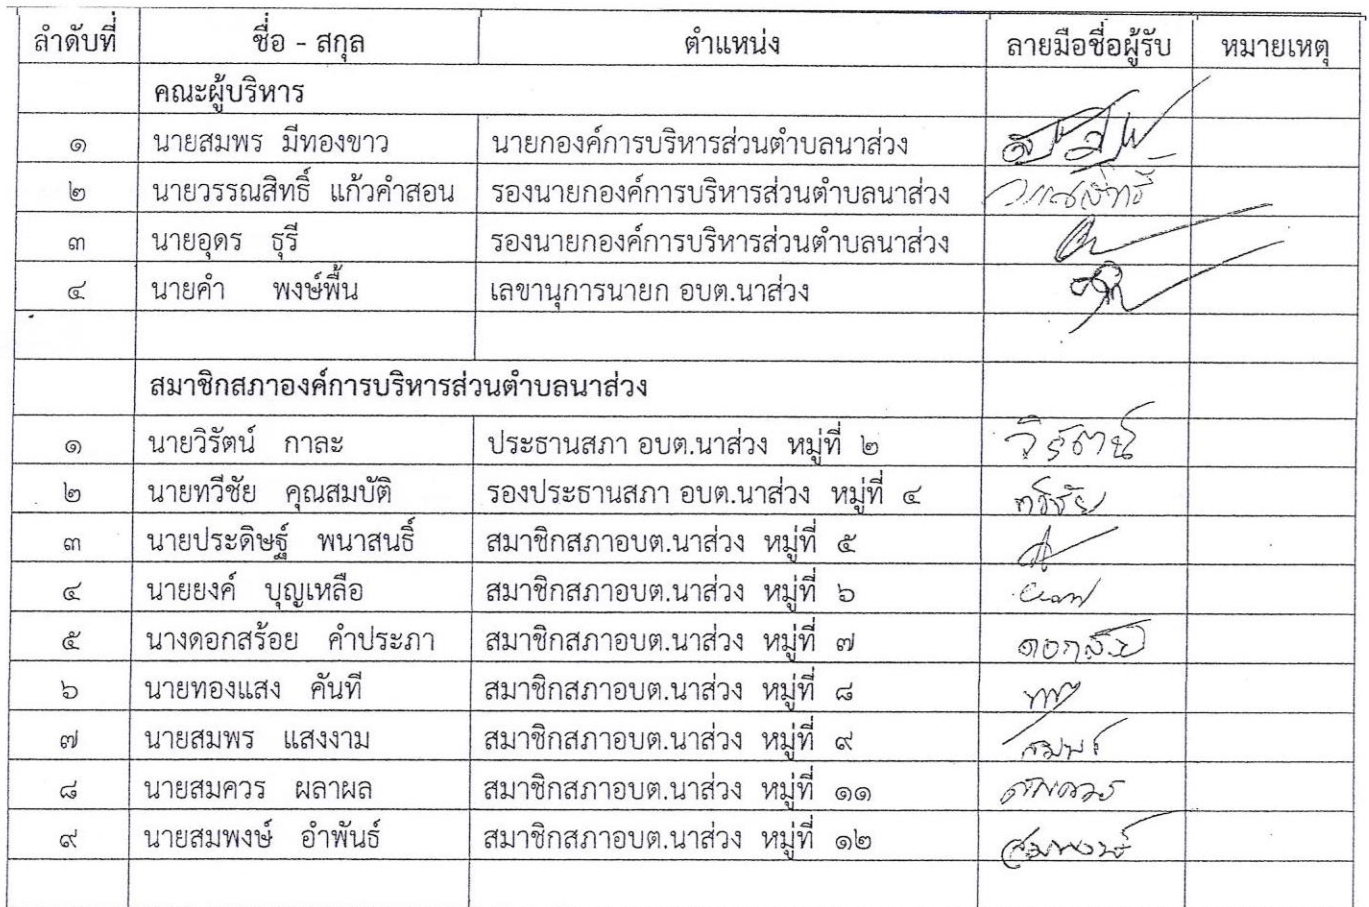 ลำดับที่ ชื่อ - สกุล ตำแหน่ง ลายมือชื่อผู้รับ หมายเหตุ
คณะผู้บริหาร
๑ นายสมพร มีทองขาว นายกองค์การบริหารส่วนตำบลนาส่วง
๒ นายวรรณสิทธิ์ แก้วคำสอน รองนายกองค์การบริหารส่วนตำบลนาส่วง
๓ นายอุดร ธุรี รองนายกองค์การบริหารส่วนตำบลนาส่วง
๔ นายคำ พงษ์พื้น เลขานุการนายก อบต.นาส่วง
สมาชิกสภาองค์การบริหารส่วนตำบลนาส่วง
๑ นายวิรัตน์ กาละ ประธานสภา อบต.นาส่วง หมู่ที่ ๒ วิรัตน์
๒ นายทวีชัย คุณสมบัติ รองประธานสภา อบต.นาส่วง หมู่ที่ ๔ ทวีชัย
๓ นายประดิษฐ์ พนาสนธิ์ สมาชิกสภาอบต.นาส่วง หมู่ที่ ๕
๔ นายยงค์ บุญเหลือ สมาชิกสภาอบต.นาส่วง หมู่ที่ ๖
๕ นางดอกสร้อย คำประภา สมาชิกสภาอบต.นาส่วง หมู่ที่ ๗
๖ นายทองแสง คันที สมาชิกสภาอบต.นาส่วง หมู่ที่ ๘
๗ นายสมพร แสงงาม สมาชิกสภาอบต.นาส่วง หมู่ที่ ๙ สมพร
๘ นายสมควร ผลาผล สมาชิกสภาอบต.นาส่วง หมู่ที่ ๑๑ สมควร
๙ นายสมพงษ์ อำพันธ์ สมาชิกสภาอบต.นาส่วง หมู่ที่ ๑๒ สมพงษ์